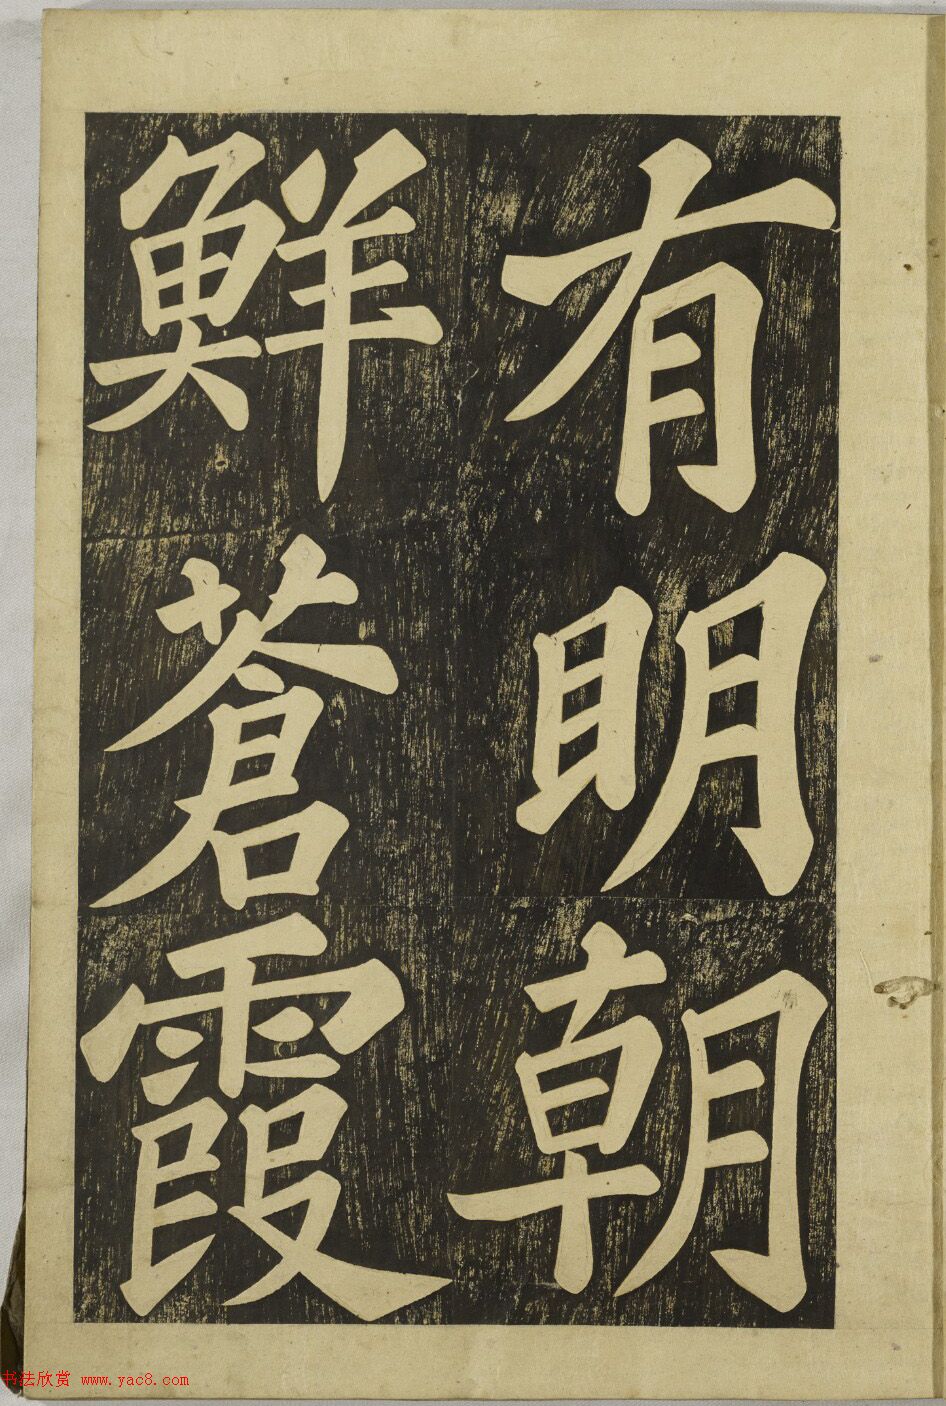 有明朝
鮮蒼霞
书法欣赏 www.yac8.com